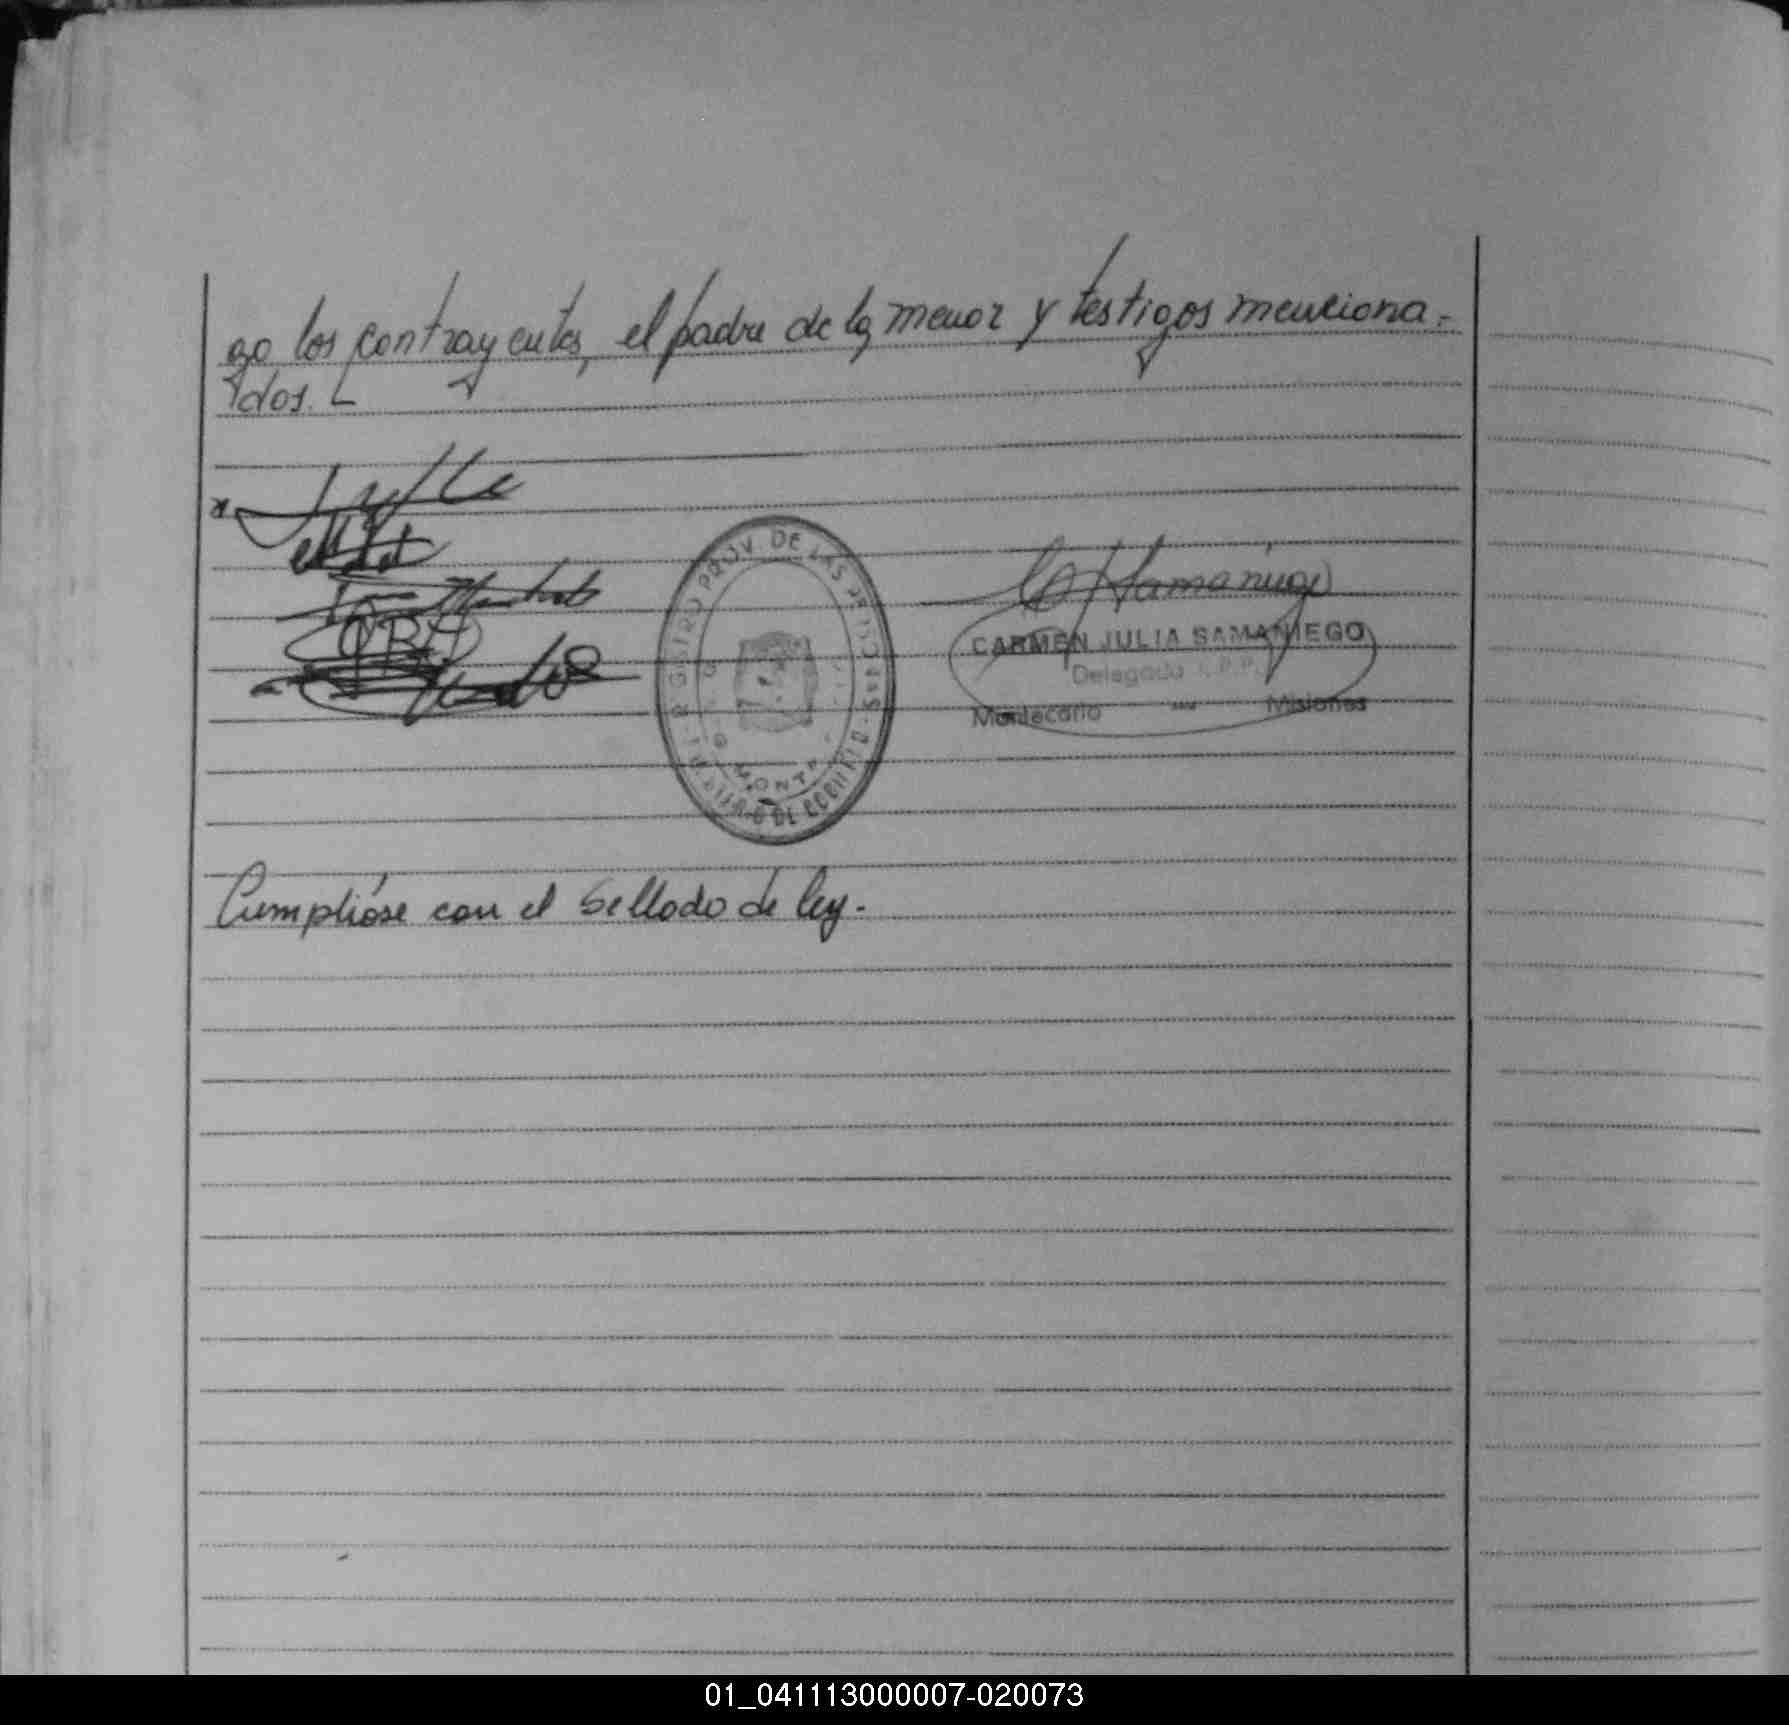 go los contrayentes, el padre de la menor y testigos menciona-
dos.
REGISTRO PROV. DE LAS PERSONAS
MONTE
CARMEN JULIA SAMANIEGO
Delegada R.P.P.
Montecarlo Misiones
Cumplióse con el sellado de ley.
01_041113000007-020073